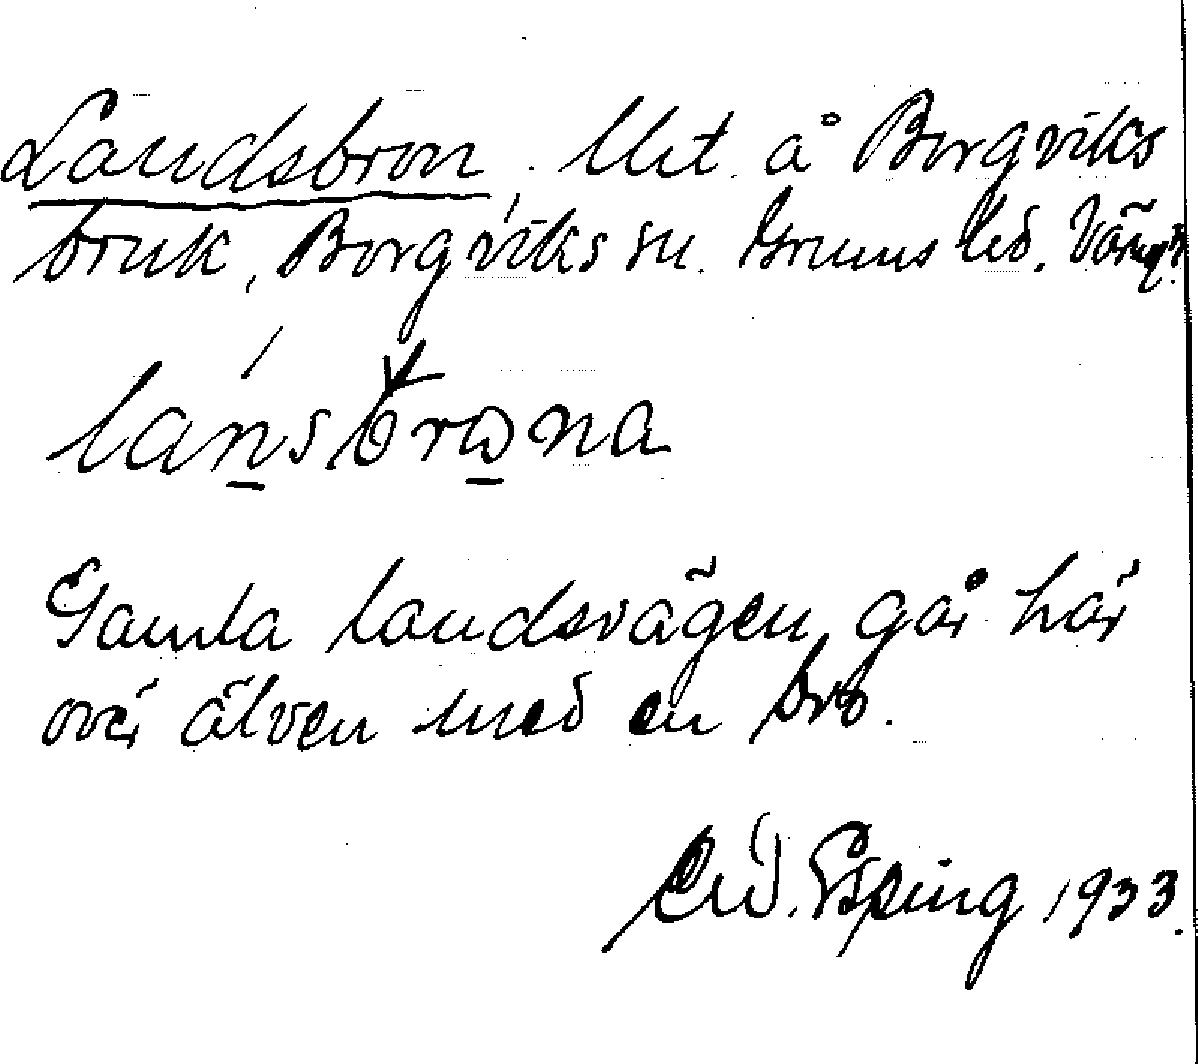 Landsbron. Ut. å Borgviks
bruk, Borgviks sn. Grums hd. Värml.
lánsbrωna
Gamla landsvägen går här
över älven med en bro.
Esping 1933.